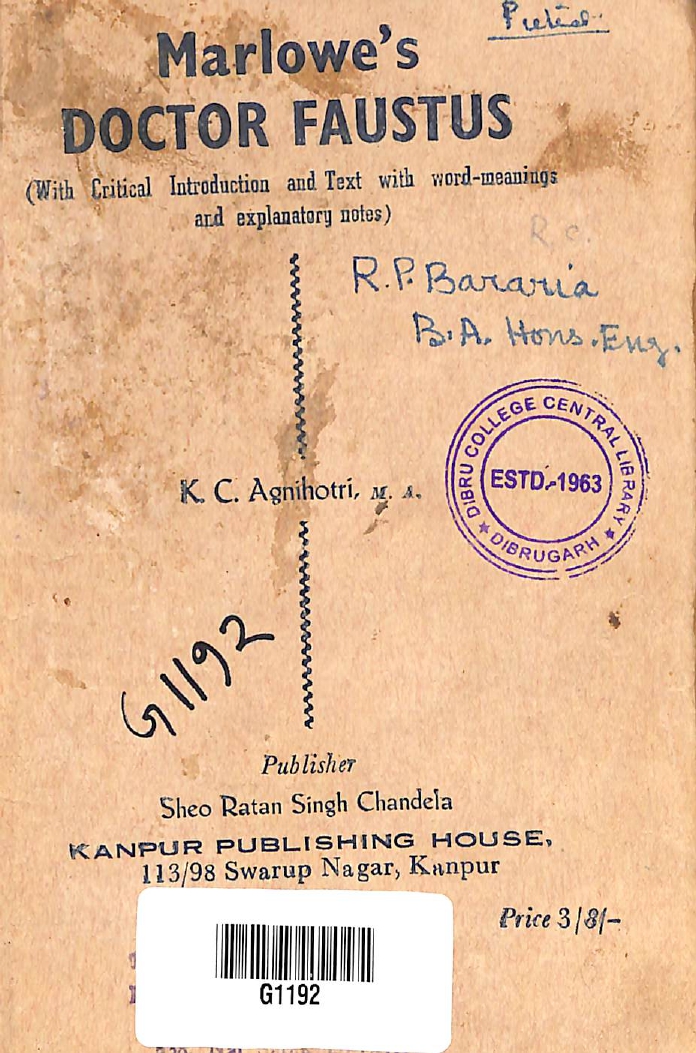 Marlowe's
DOCTOR FAUSTUS
(With Critical Introduction and Text with word-meanings
and explanatory notes)
R. C.
R. P. Bararia
B.A. Hons. Eng.
DIBRU COLLEGE CENTRAL LIBRARY
ESTD.-1963
★ DIBRUGARH ★
K. C. Agnihotri, M. A.
G1192
Publisher
Sheo Ratan Singh Chandela
KANPUR PUBLISHING HOUSE,
113/98 Swarup Nagar, Kanpur
Price 3/8/-
G1192